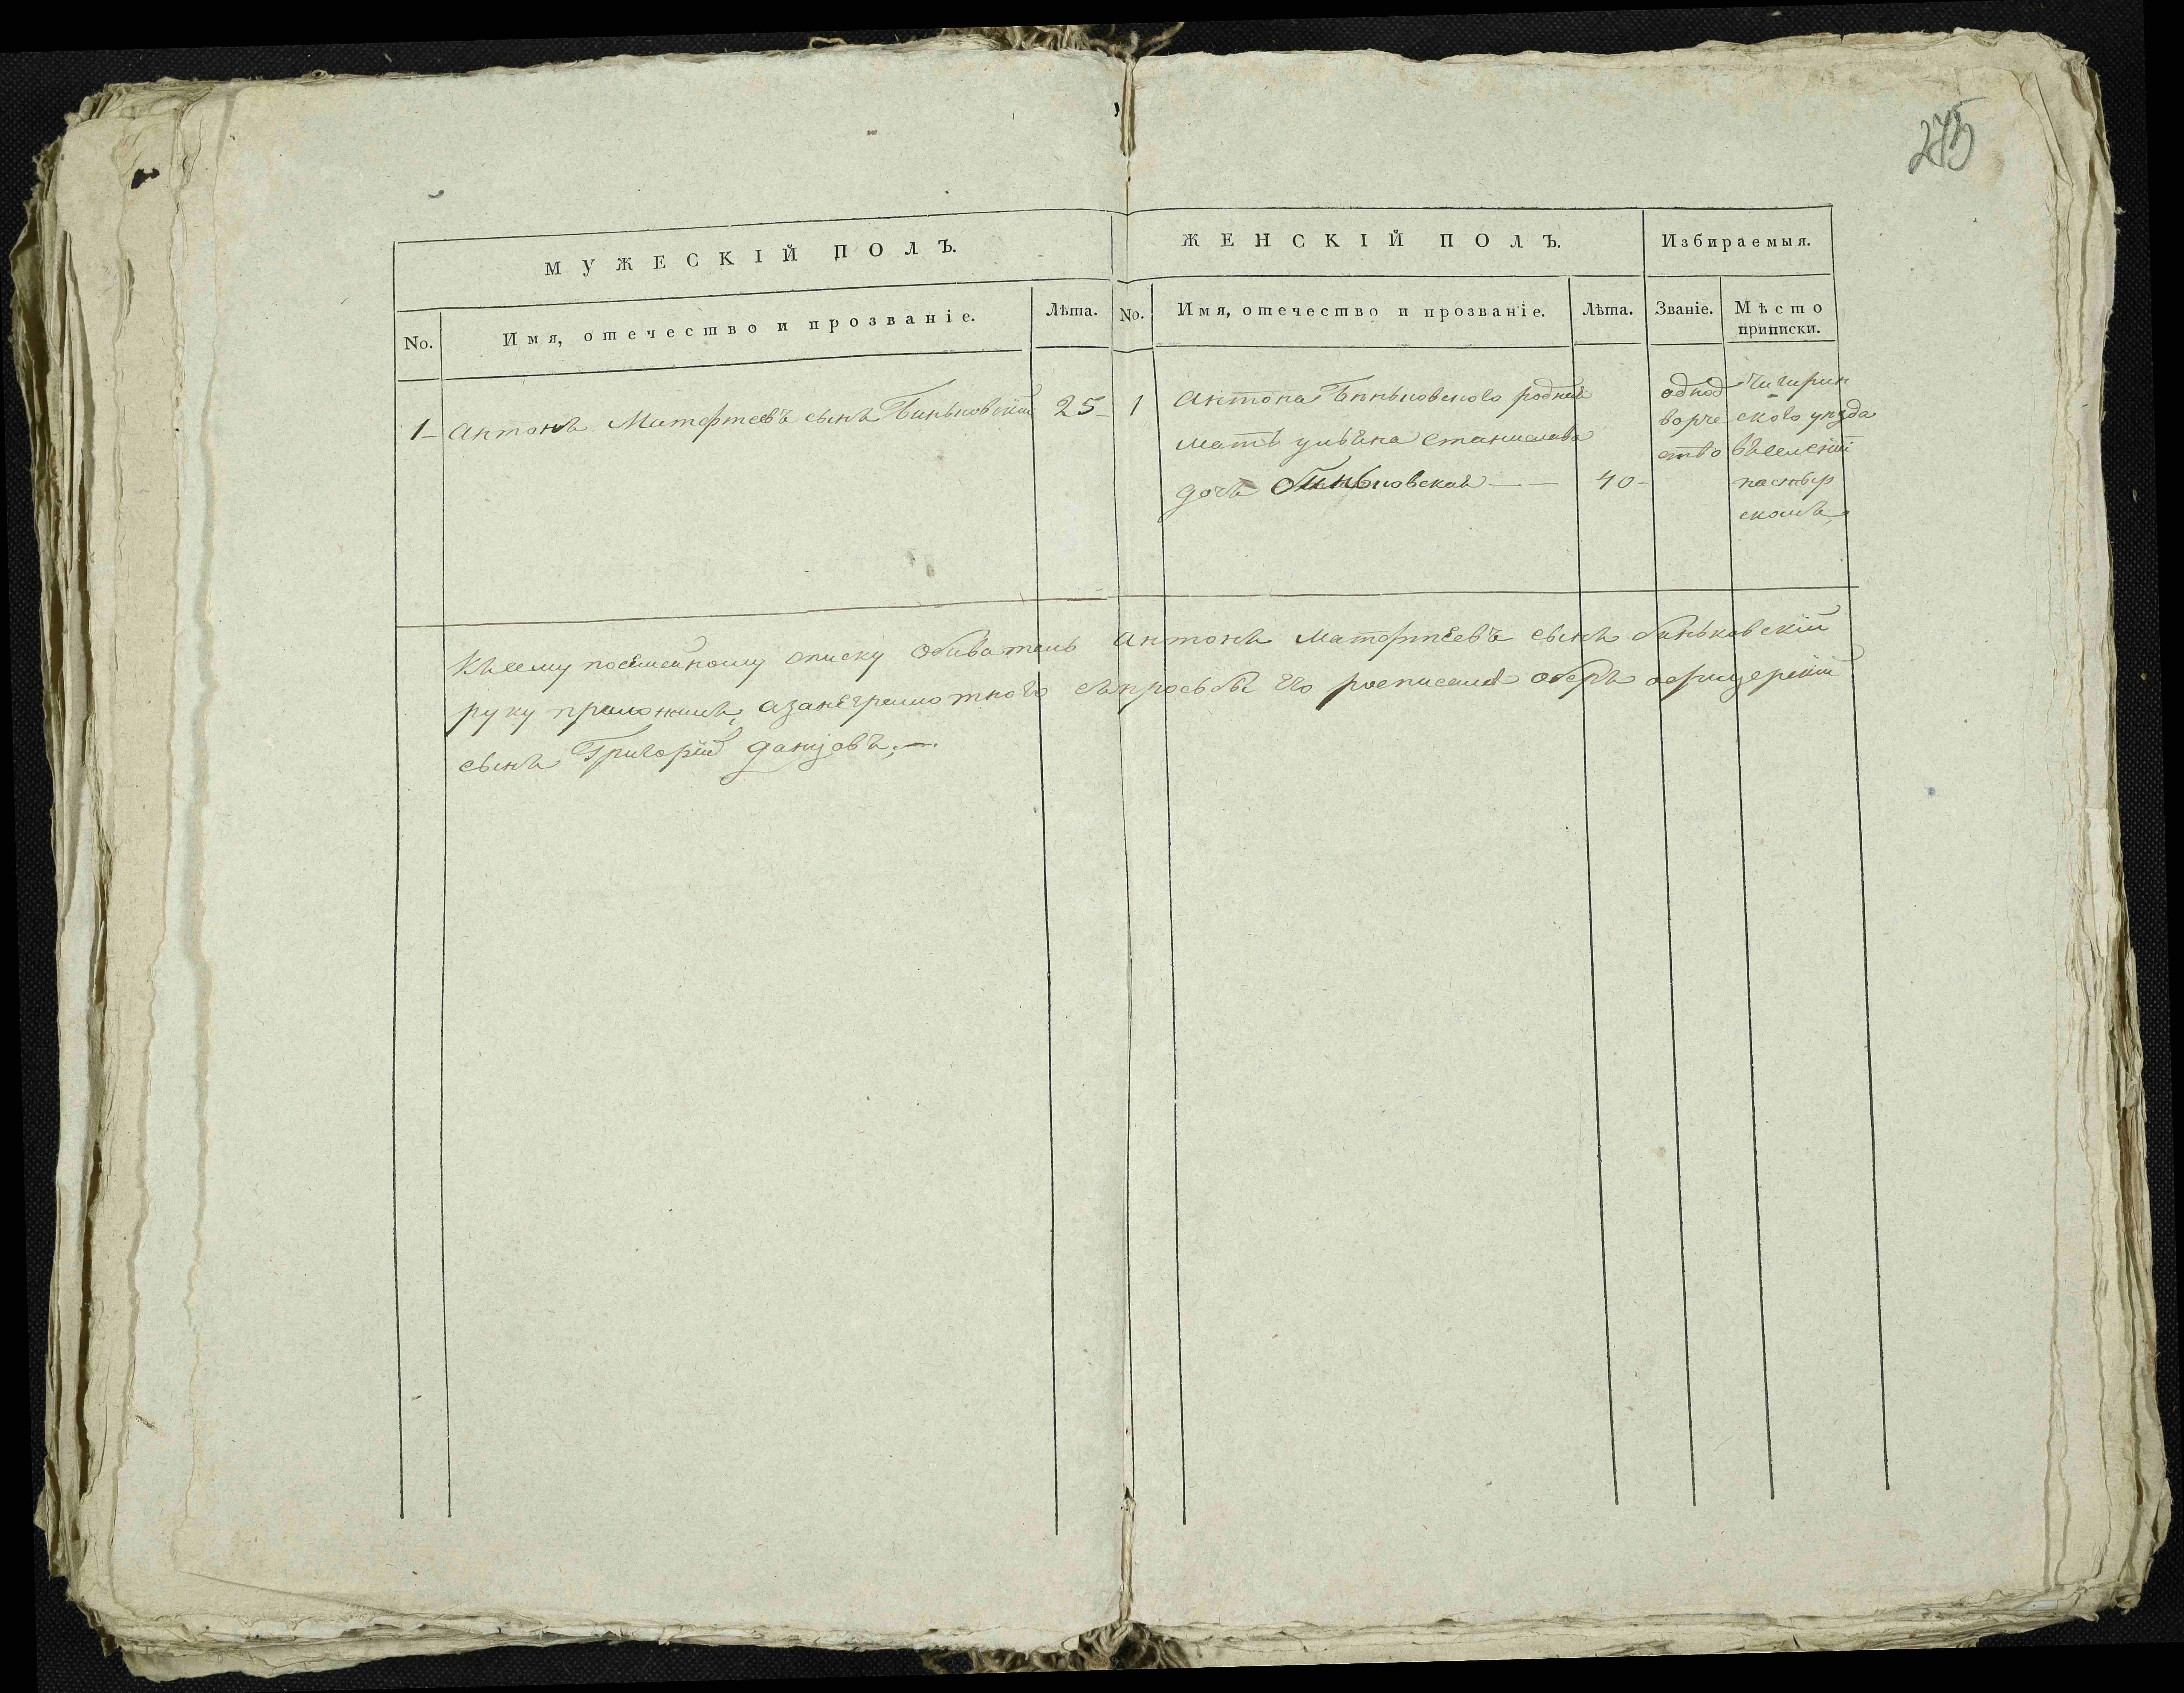 275
МУЖЕСКІЙ ПОЛЪ.
ЖЕНСКІЙ ПОЛЪ.
Избираемыя.
No.
Имя, отечество и прозваніе.
Лѣта.
No.
Имя, отечество и прозваніе.
Лѣта.
Званіе.
Мѣсто
приписки.
1 антонъ Матфтеевъ сынъ Биньковскій 25
1 антона Биньковского родная
мать ульяна станиславова
дочь биньковская 40
однод
ворче
ство
Чигирин
ского уезда
въ селеніи
пастыр
скомъ
Къ сему посемейному списку обыватель антонъ матфтеевъ сынъ биньковскій
руку приложилъ, а за неграмотного съ прозьбы его росписался оберъ офицерскій
сынъ Григорій